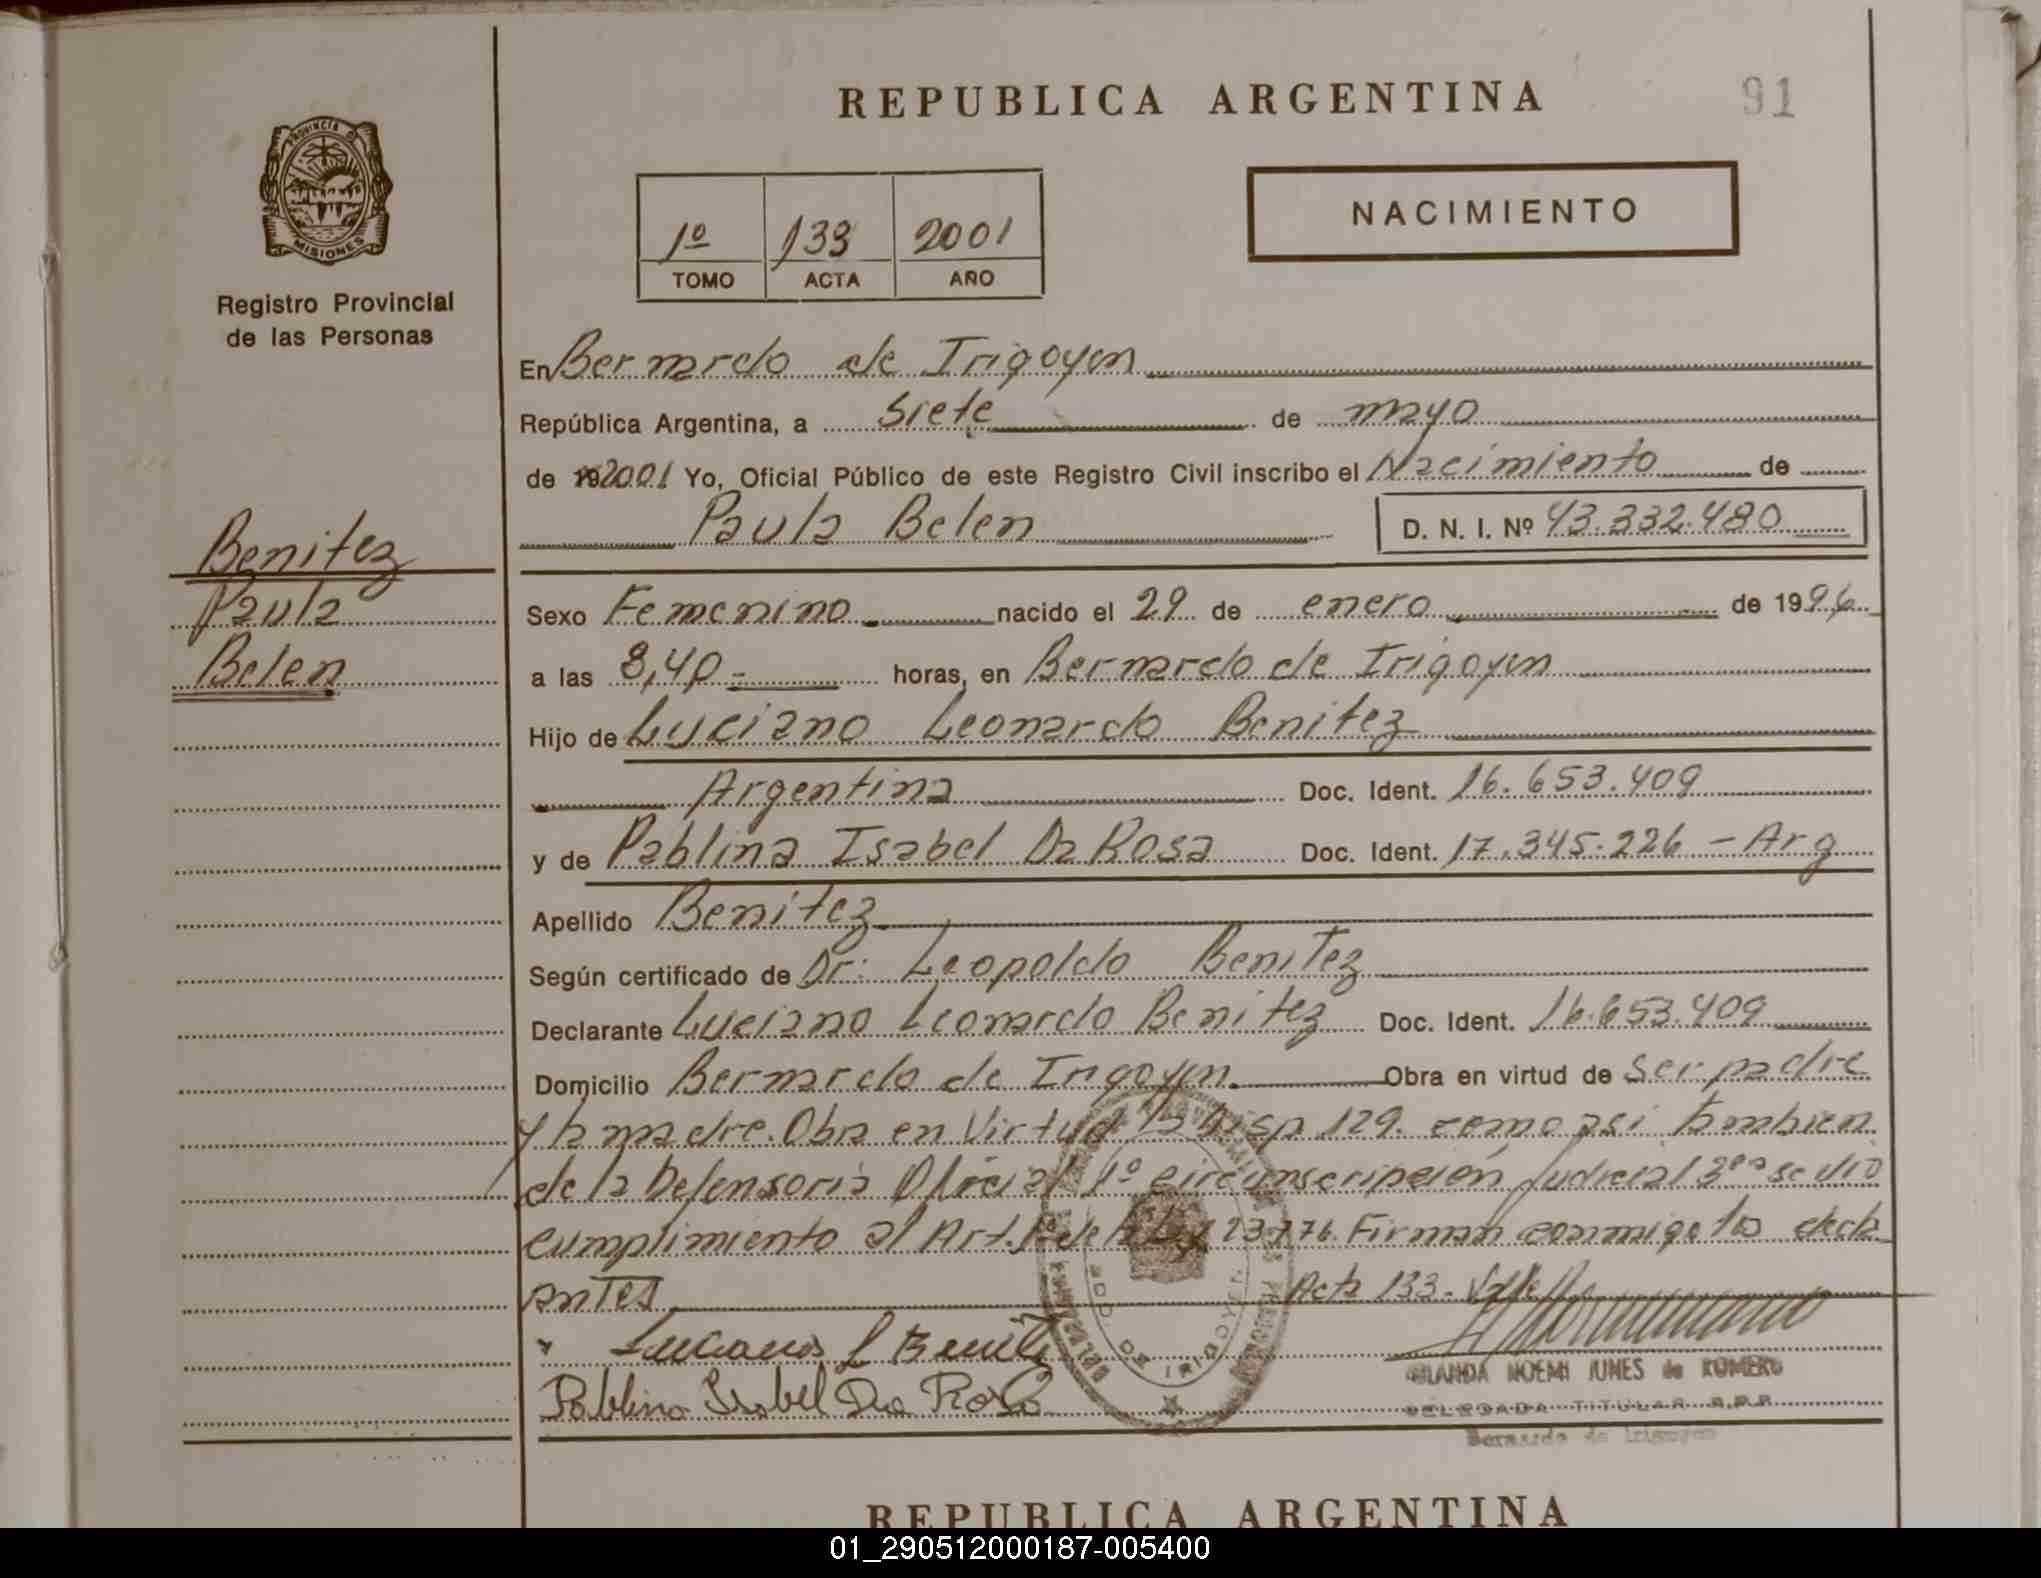 REPUBLICA ARGENTINA
91
PROVINCIA DE
MISIONES
Registro Provincial
de las Personas
1º 133 2001
TOMO ACTA AÑO
NACIMIENTO
En Bernardo de Irigoyen
República Argentina, a siete de mayo
de 192001 Yo, Oficial Público de este Registro Civil inscribo el Nacimiento de
Paula Belen D. N. I. Nº 43.332.480
Benitez
Paula
Belen
Sexo Femenino nacido el 29 de enero de 1996
a las 8,40 - horas, en Bernardo de Irigoyen
Hijo de Luciano Leonardo Benitez
Argentina Doc. Ident. 16.653.409
y de Pablina Isabel Da Rosa Doc. Ident. 17.345.226 - Arg
Apellido Benitez
Según certificado de Dr: Leopoldo Benitez
Declarante Luciano Leonardo Benitez Doc. Ident. 16.653.409
Domicilio Bernardo de Irigoyen Obra en virtud de ser padre
y la madre. Obra en Virtud la Disp 129. como asi tambien
de la Defensoria Oficial 1º circunscripción Judicial 3ª se dio
cumplimiento al Art. 1º de la Ley 23.776. Firman conmigo los decla
antes Acta 133 - Valle
Luciano L Benitez
Pablina Isabel Da Rosa
DE IRIGOYEN
NOEMI JUNES de ROMERO
DELEGADA TITULAR R.P.P.
Bernardo de Irigoyen
REPUBLICA ARGENTINA
01_290512000187-005400